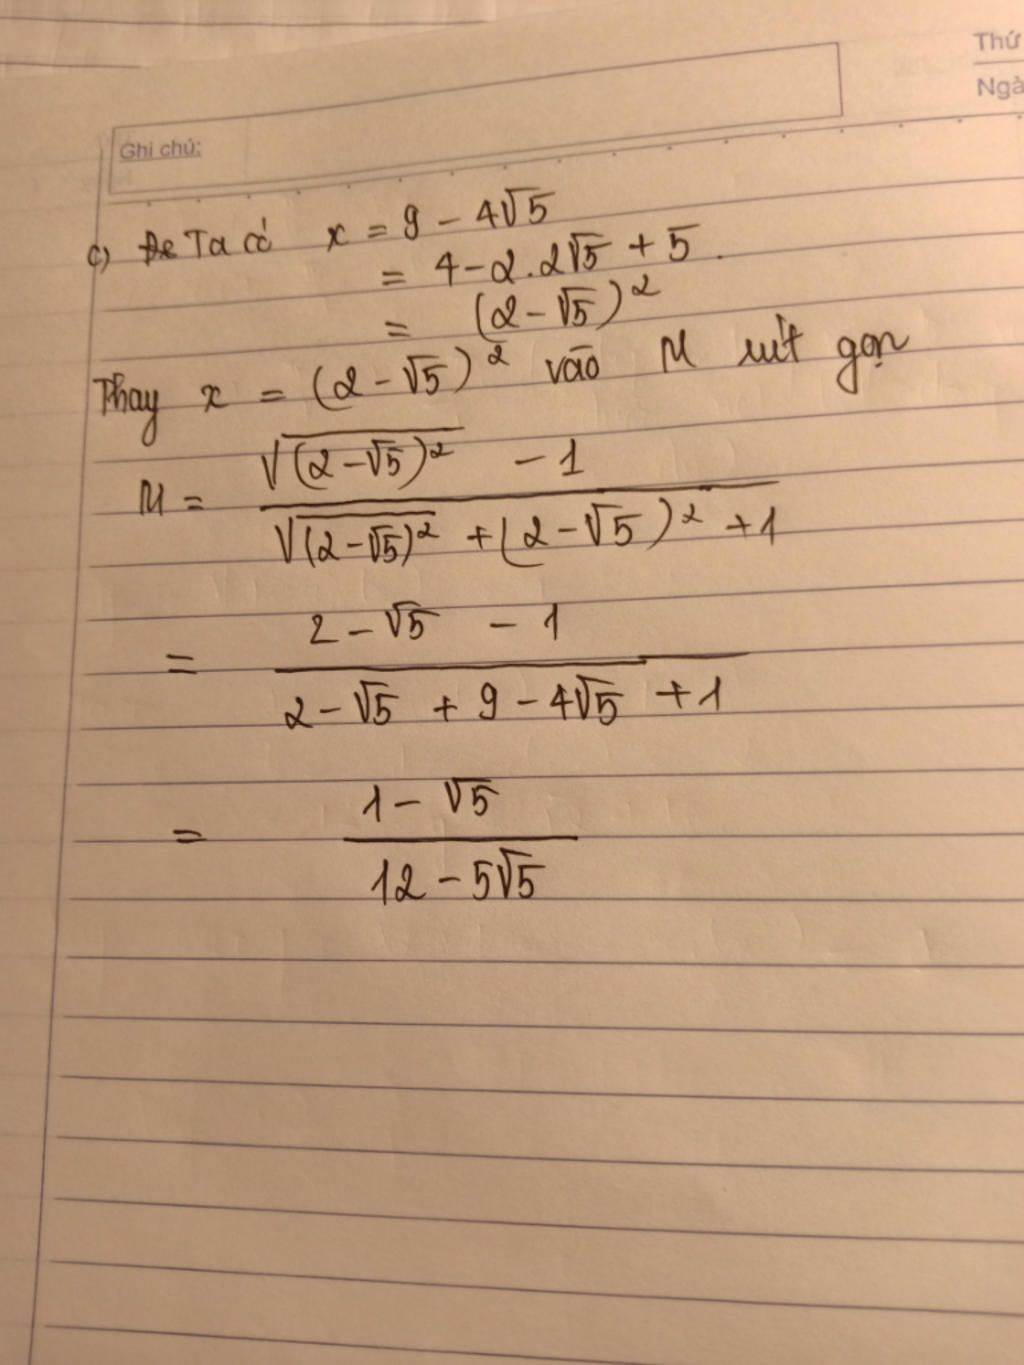 Thứ
Ngà
Ghi chú:
c) Ta có x = 9 - 4√5
= 4 - 2.2√5 + 5.
= (2 - √5)²
Thay x = (2 - √5)² vào M rút gọn
M = (√((2 - √5)²) - 1) / (√((2 - √5)²) + (2 - √5)² + 1)
= (2 - √5 - 1) / (2 - √5 + 9 - 4√5 + 1)
= (1 - √5) / (12 - 5√5)